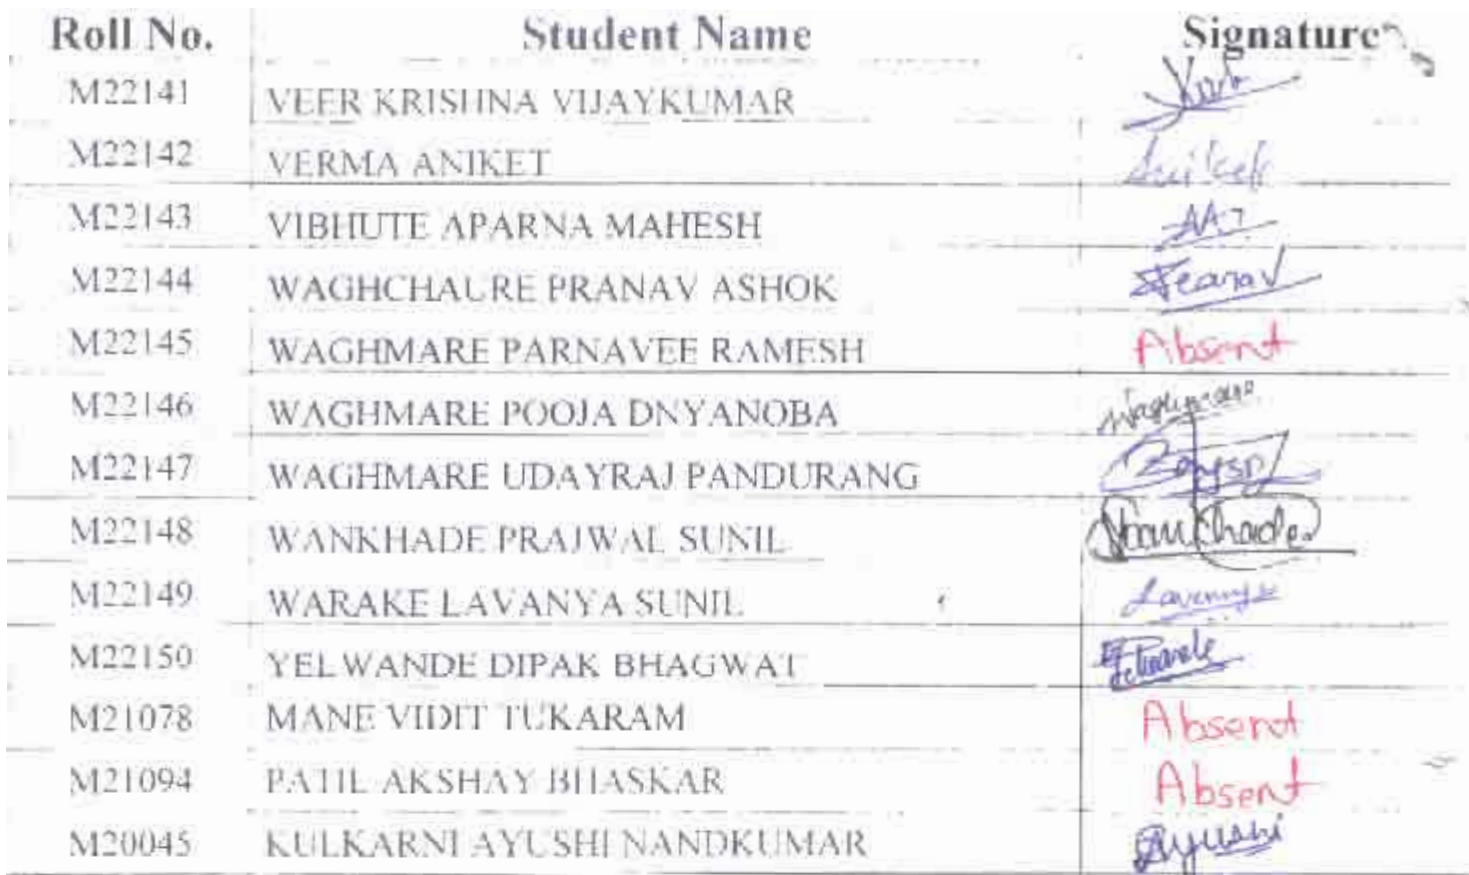 Roll No. Student Name Signature
M22141 VEER KRISHNA VIJAYKUMAR
M22142 VERMA ANIKET Aniket
M22143 VIBHUTE APARNA MAHESH
M22144 WAGHCHAURE PRANAV ASHOK Pranav
M22145 WAGHMARE PARNAVEE RAMESH Absent
M22146 WAGHMARE POOJA DNYANOBA Waghmare
M22147 WAGHMARE UDAYRAJ PANDURANG
M22148 WANKHADE PRAJWAL SUNIL Wankhade
M22149 WARAKE LAVANYA SUNIL Lavanya
M22150 YELWANDE DIPAK BHAGWAT
M21078 MANE VIDIT TUKARAM Absent
M21094 PATIL AKSHAY BHASKAR Absent
M20045 KULKARNI AYUSHI NANDKUMAR Ayushi